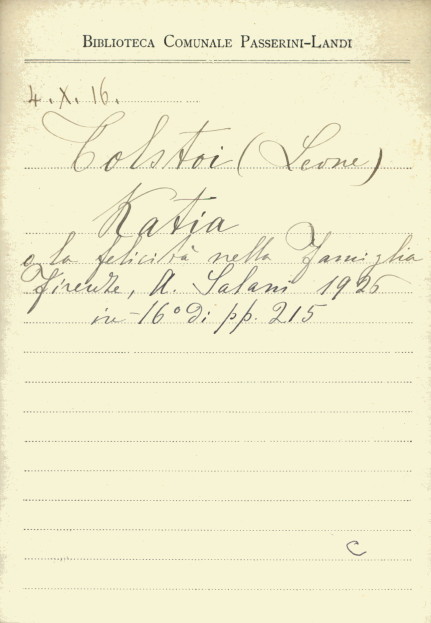 BIBLIOTECA COMUNALE PASSERINI-LANDI
4. X. 16.
Tolstoi (Leone)
Katia
o la felicità nella famiglia
Firenze, A. Salani 1925
in-16° di pp. 215
C